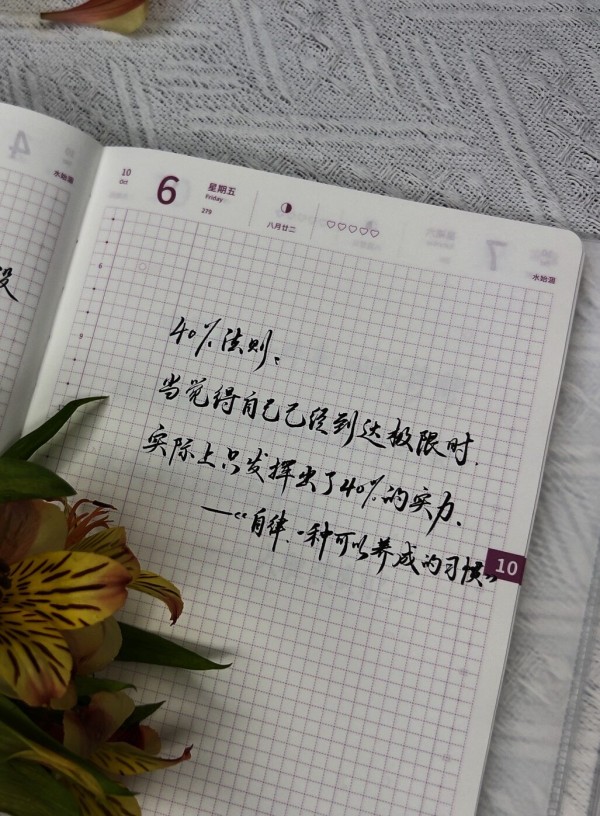 4
水始涸
没
10
Oct
6
星期五
Friday
279
八月廿二
7
水始涸
6
9
40%法则、
当觉得自己已经到达极限时.
实际上只发挥出了40%的实力.
—《自律.一种可以养成的习惯》
10